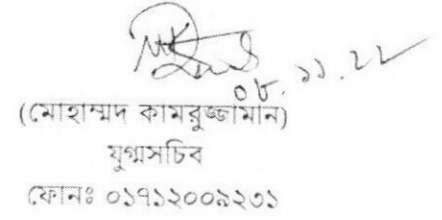 ০৮.১১.২২
(মোহাম্মদ কামরুজ্জামান)
যুগ্মসচিব
ফোনঃ ০১৭১২০০৯২৩১